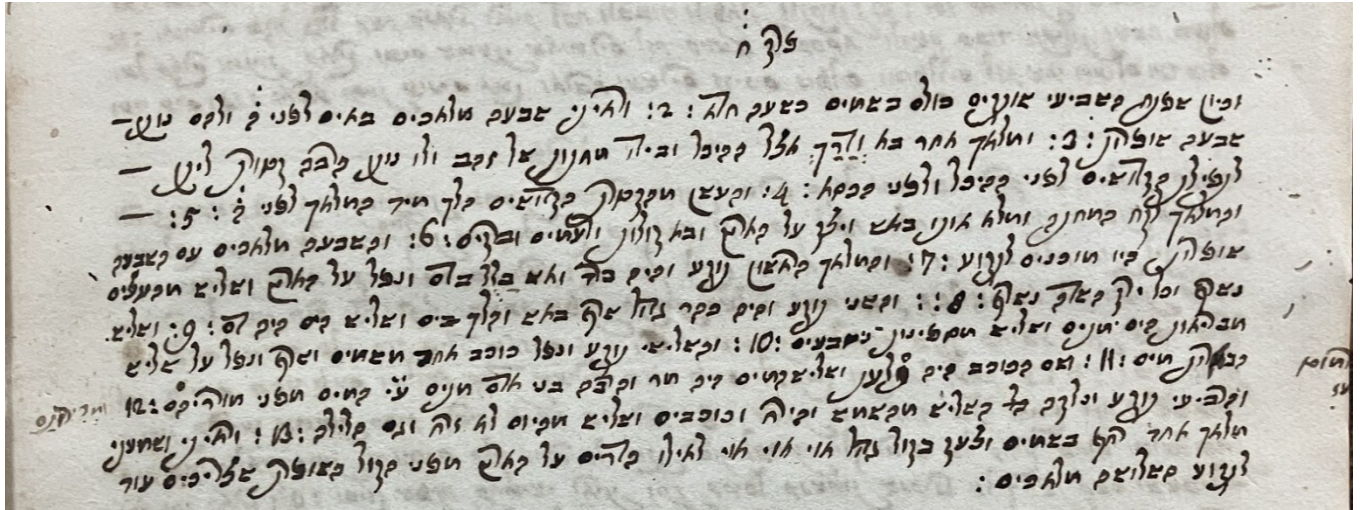 פרק ח
וכיון שפתח השביעי שותקים כולם בשמים כשעה חדא: 2: וראיתי שבעה מלאכים באים לפני ה' ולהם נותן—
שבעה שופרות: 3: ומלאך אחר בא אצל ההיכל ובידו מחנון של זהב ולו ניתן הרבה קטורת ליתן —
לתפילת הקדושים לפני ההיכל ולפני הכסא: 4: ועשן הקדושים הלך מיד המלאך לפני ה': 5: —
והמלאך לקח המחנה ומלא אותו באש על הארץ ובא קולות ורעמים וברקים: 6: והשבעה מלאכים עם השבעה
שופרות היו מוכנים לתקוע: 7: והמלאך הראשון תוקע והיה ברד ואש בדם ונפל על הארץ ושליש מהעצים
נשרף וכל ירק הארץ נשרף: 8: והשני תוקע והיה כהר גדול שרף באש והלך בים ושליש הים היה דם: 9: ושליש
הים מתים ושליש מספינות נטבעים: 10: והשלישי תוקע ונפל כוכב אחד משמים ושרף ונפל על שליש
מים: 11: ושם הכוכב היה לענן ושליש המים היה מר והרבה בני אדם מתים ע"י המים מפני: 12
והרביעי תוקע ונלקה השליש מהשמש והירח וכוכבים ושליש מהיום לא זרח וגם הלילה: 13: וראיתי ושמעתי
מלאך אחד בשמים וצעק בקול גדול אוי אוי אוי לאילו הדרים על הארץ מפני הקול השופרות שצריכים עוד
לתקוע השלושה מלאכים: